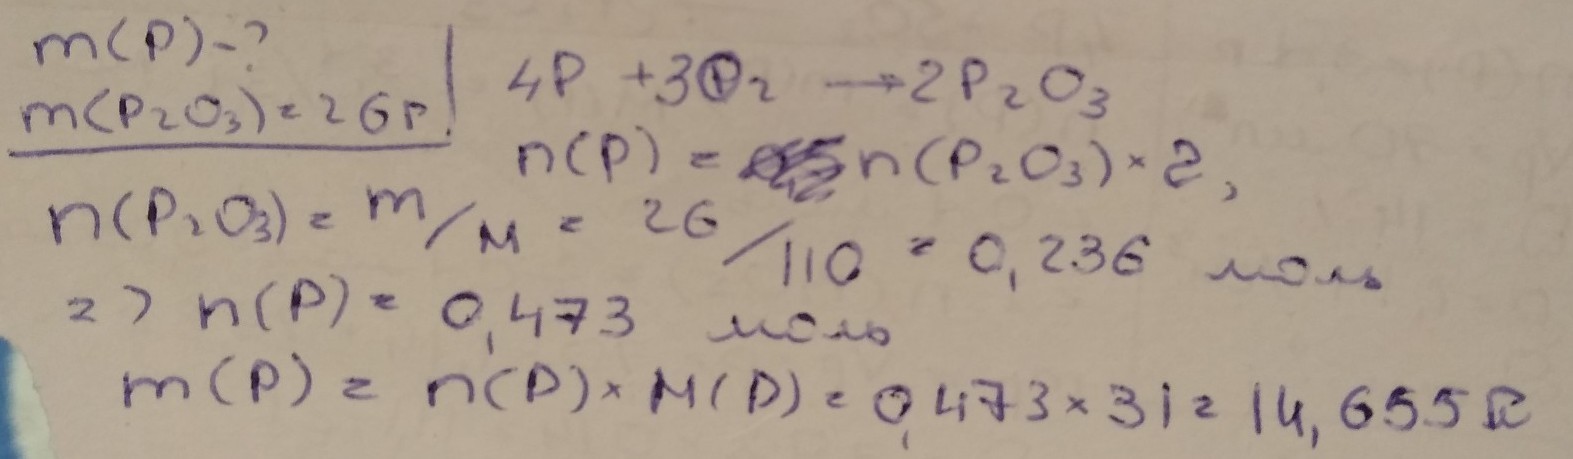 m(P)-?
m(P₂O₃)=26г.
4P +3O₂ → 2P₂O₃
n(P) = n(P₂O₃)×2,
n(P₂O₃) = m/M = 26/110 = 0,236 моль
=> n(P) = 0,473 моль
m(P) = n(P)×M(P) = 0,473×31 = 14,655 г